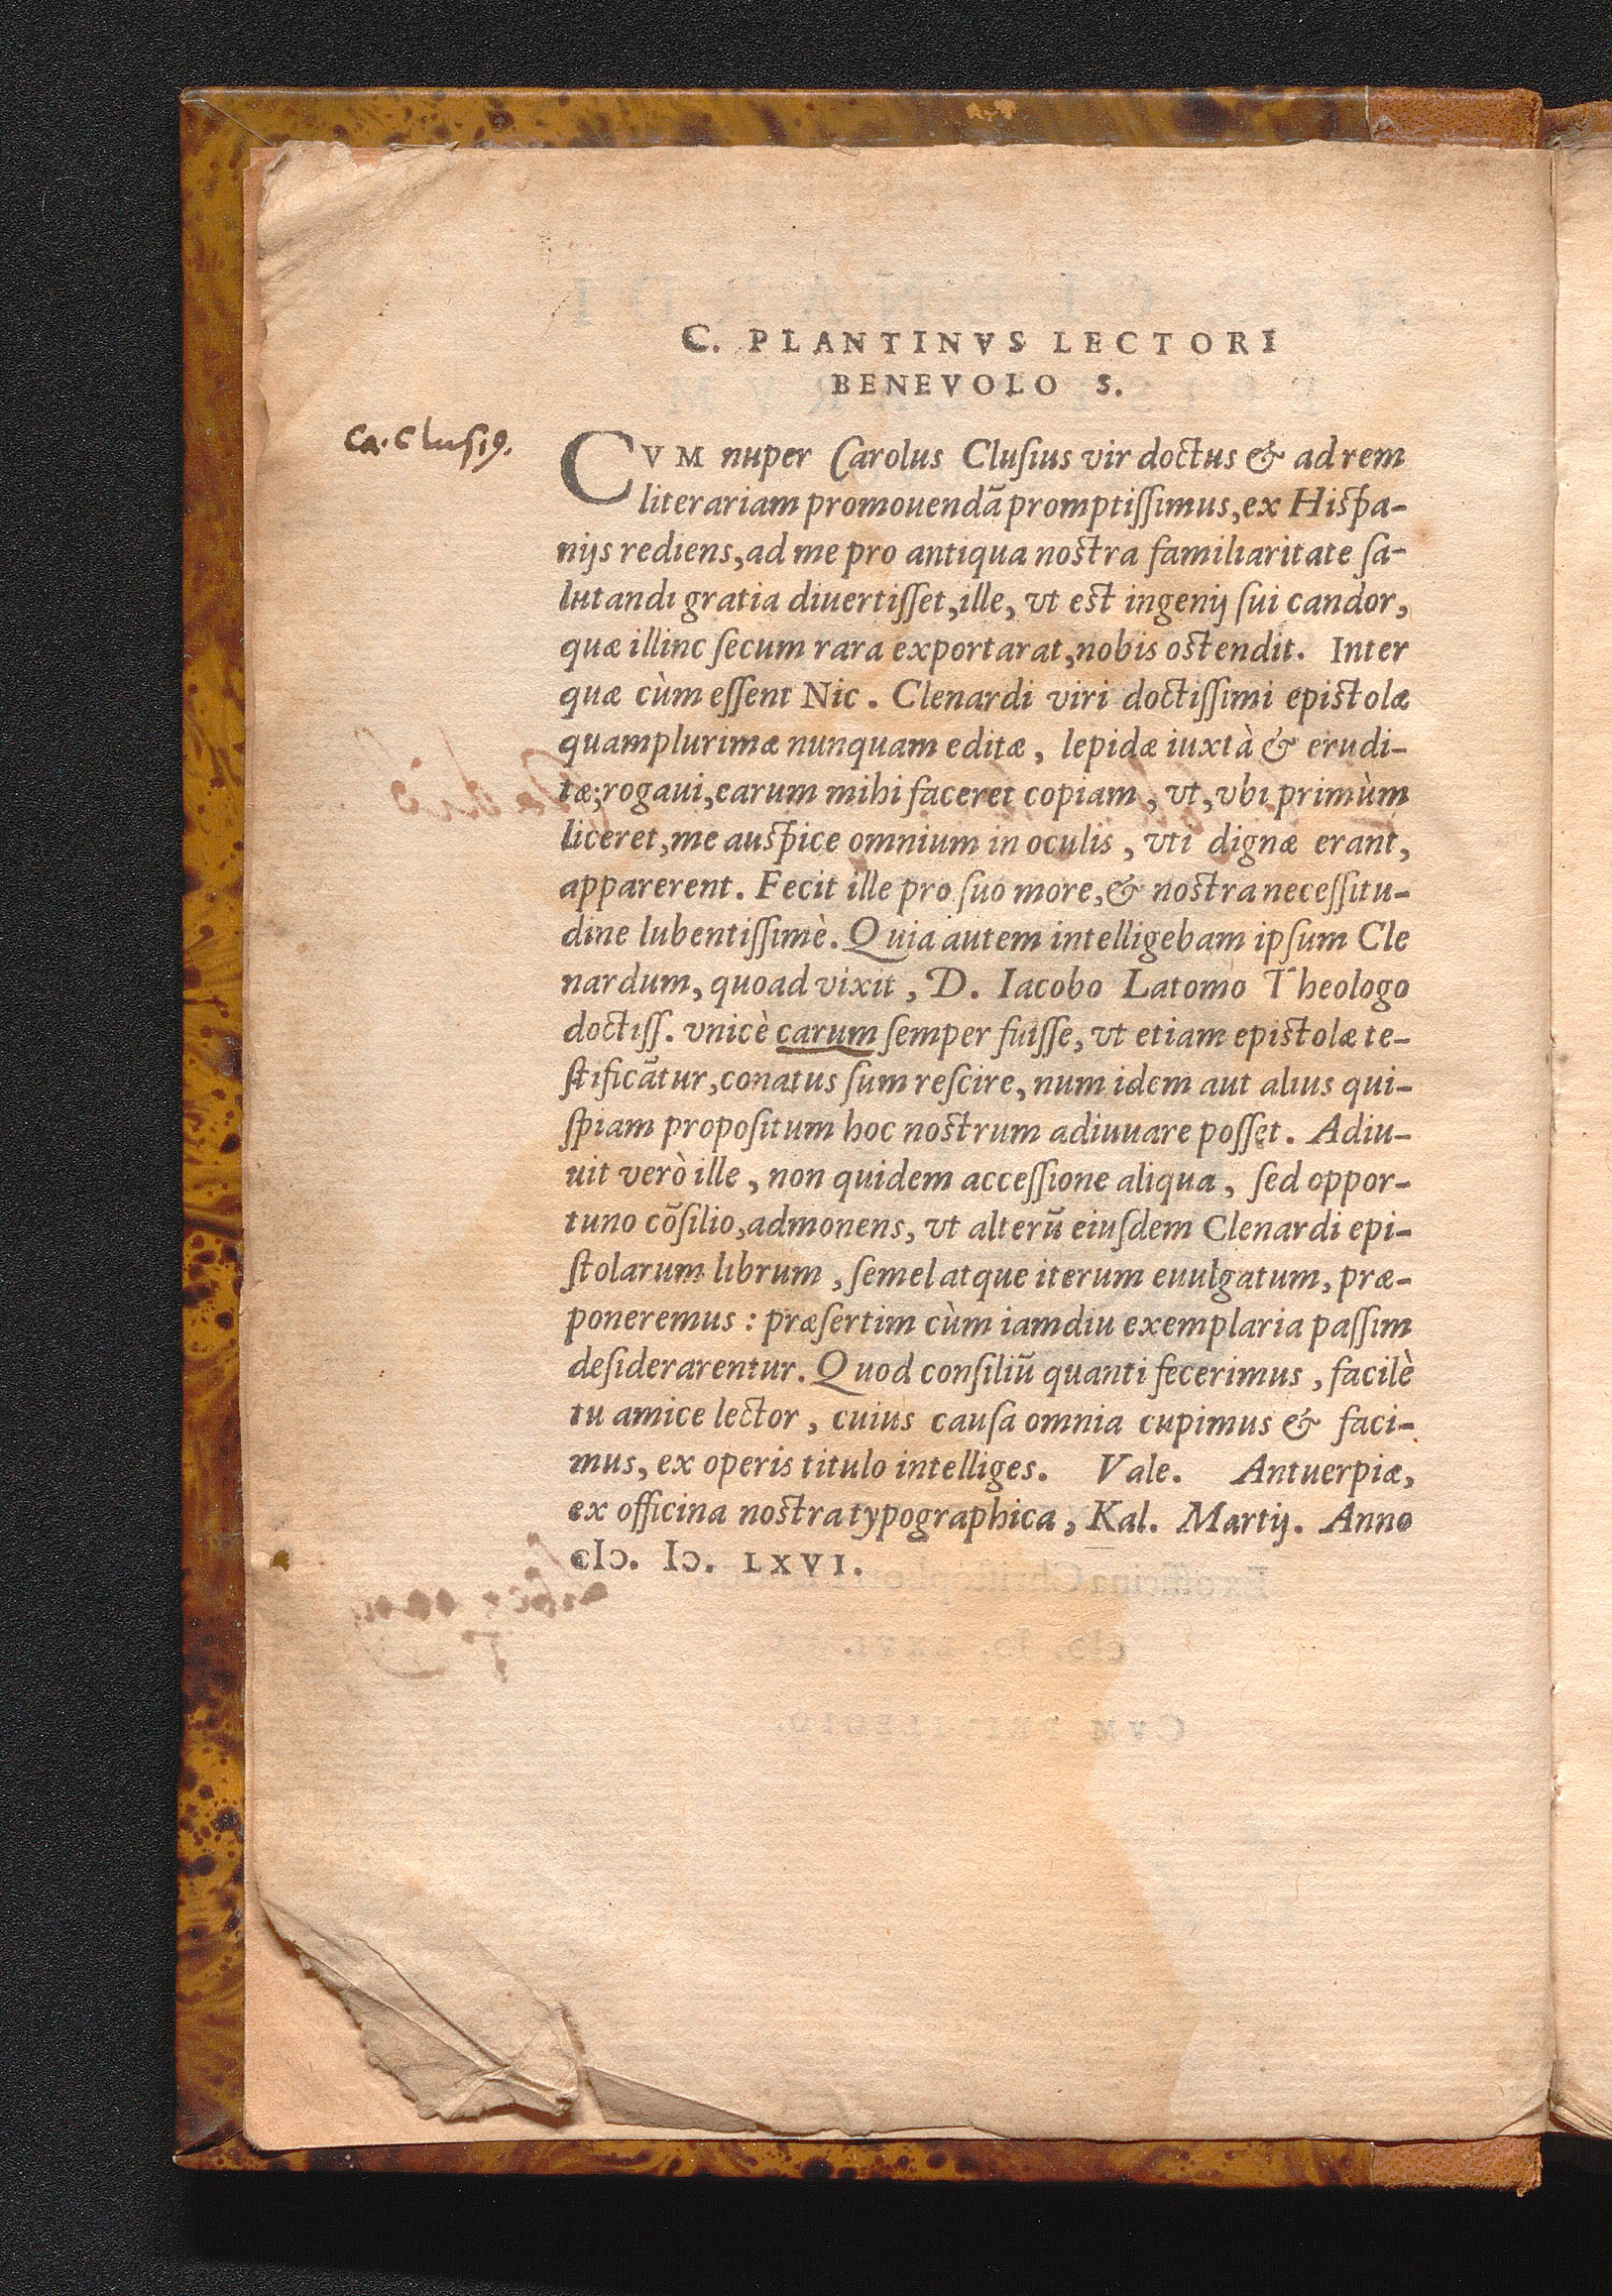 C. PLANTINVS LECTORI
BENEVOLO S.
Ca. Clusiꝰ.
CVM nuper Carolus Clusius vir doctus & ad rem
literariam promouendā promptissimus, ex Hispa-
nijs rediens, ad me pro antiqua nostra familiaritate sa-
lutandi gratia diuertisset, ille, vt est ingenij sui candor,
quæ illinc secum rara exportarat, nobis ostendit. Inter
quæ cùm essent Nic. Clenardi viri doctissimi epistolæ
quamplurimæ nunquam editæ, lepidæ iuxtà & erudi-
tæ; rogaui, earum mihi faceret copiam, vt, vbi primùm
liceret, me auspice omnium in oculis, vti dignæ erant,
apparerent. Fecit ille pro suo more, & nostra necessitu-
dine lubentissimè. Quia autem intelligebam ipsum Cle
nardum, quoad vixit, D. Iacobo Latomo Theologo
doctiss. vnicè carum semper fuisse, vt etiam epistolæ te-
stificātur, conatus sum rescire, num idem aut alius qui-
spiam propositum hoc nostrum adiuuare posset. Adiu-
uit verò ille, non quidem accessione aliqua, sed oppor-
tuno cōsilio, admonens, vt alterū eiusdem Clenardi epi-
stolarum librum, semel atque iterum euulgatum, præ-
poneremus: præsertim cùm iamdiu exemplaria passim
desiderarentur. Quod consiliū quanti fecerimus, facilè
tu amice lector, cuius causa omnia cupimus & faci-
mus, ex operis titulo intelliges. Vale. Antuerpiæ,
ex officina nostra typographica, Kal. Martij. Anno
cIↄ. Iↄ. LXVI.